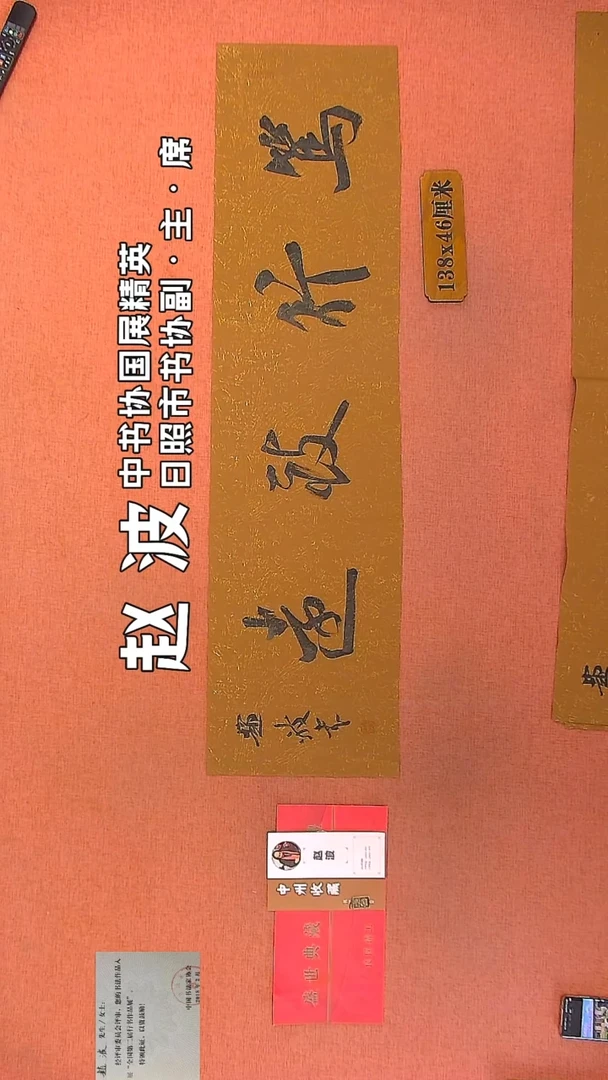 赵波
中书协国展精英
日照市书协副·主·席
篤行致遠
趙波书
138x46厘米
赵波
中州收藏
盛世典藏
先生/女士：
经评审委员会评审，您的书法作品入
展“全国第二届行书作品展”，
特颁此证，以资鼓励！
中国书法家协会